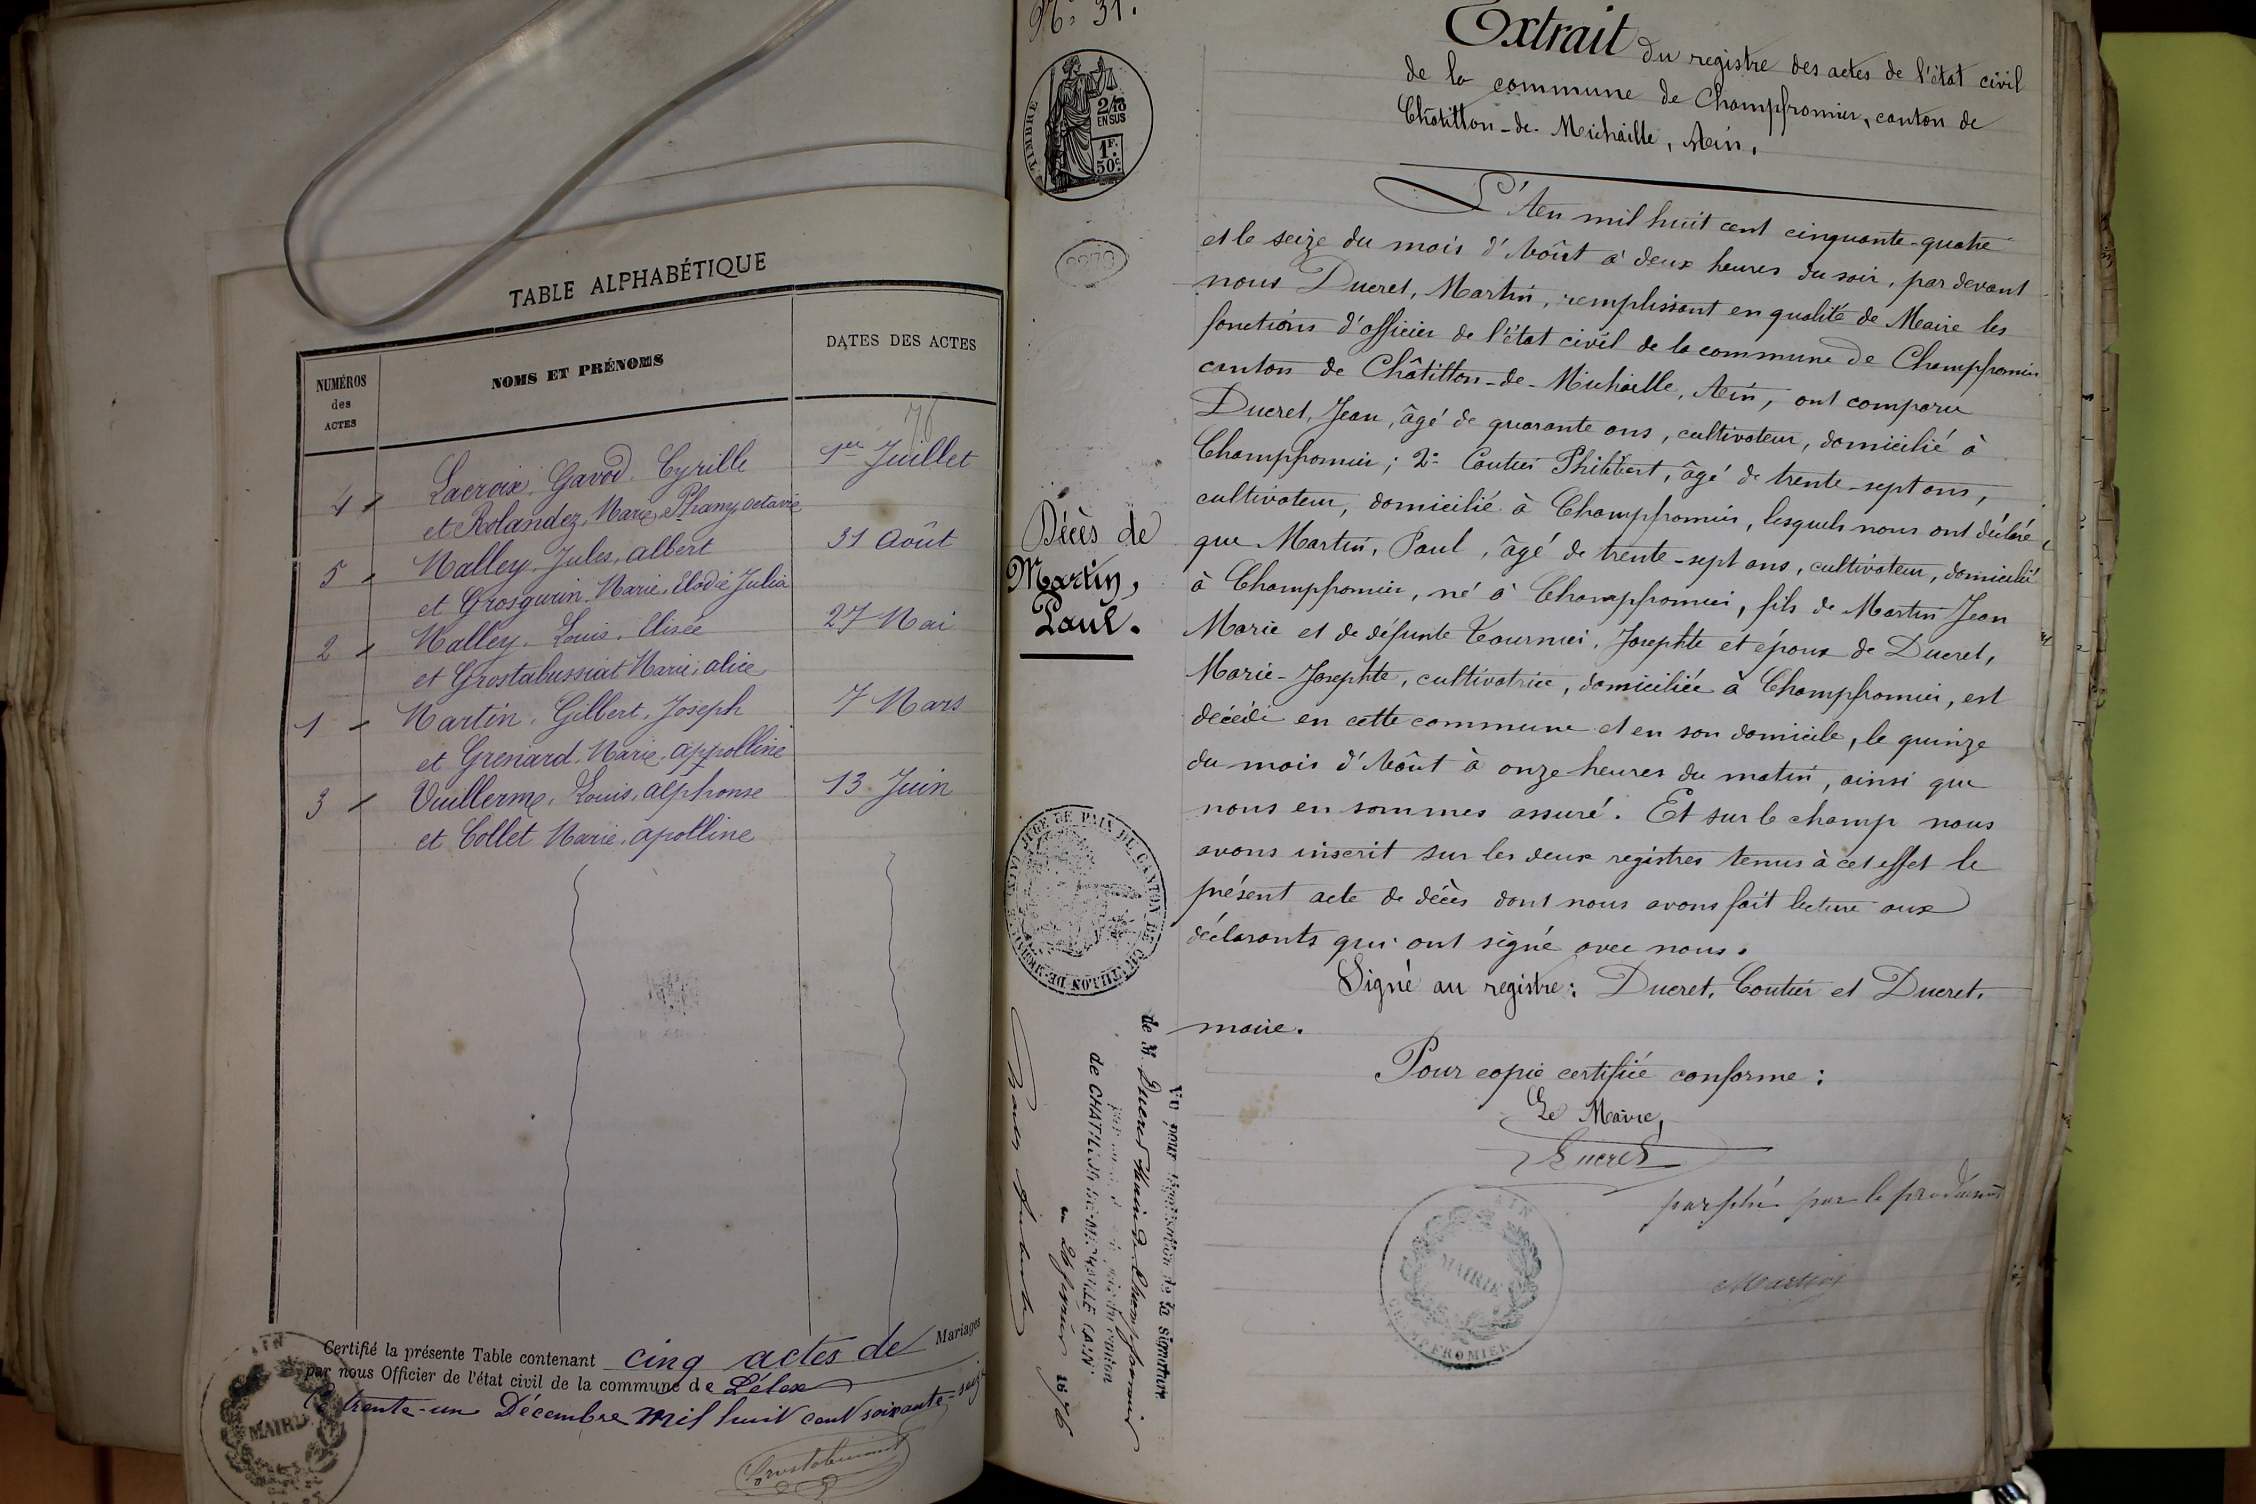 TABLE ALPHABÉTIQUE
NUMÉROS
des
ACTES
NOMS ET PRÉNOMS
DATES DES ACTES
76
4 Lacroix, Gavod, Cyrille 1er Juillet
et Rolandez, Marie, Phany, octavie
5 Malley, Jules, albert 31 Août
et Grosgurin, Marie, Elodie Julia
2 Malley, Louis, Elisée 27 Mai
et Grostabussiat Marie, alice
1 Martin, Gilbert, Joseph 7 Mars
et Grenard, Marie, appolline
3 Vuillerme, Louis, alphonse 13 Juin
et Collet Marie, apolline
Certifié la présente Table contenant cinq actes de Mariages
par nous Officier de l'état civil de la commune de Lélex
Ce trente-un Décembre mil huit cent soixante-seize
AIN
MAIRIE
N° 31.
TIMBRE
2/10
EN SUS
1F.
50c.
Extrait du registre des actes de l'état civil
de la commune de Champfromier, canton de
Châtillon-de-Michaille, Ain.
L'An mil huit cent cinquante-quatre
et le seize du mois d'Août à deux heures du soir, par devant
nous Ducret, Martin, remplissant en qualité de Maire les
fonctions d'officier de l'état civil de la commune de Champfromier
canton de Châtillon-de-Michaille, Ain, ont comparu
Ducret, Jean, âgé de quarante ans, cultivateur, domicilié à
Champfromier; 2° Coutier Philibert, âgé de trente-sept ans,
cultivateur, domicilié à Champfromier, lesquels nous ont déclaré
que Martin, Paul, âgé de trente-sept ans, cultivateur, domicilié
à Champfromier, né à Champfromier, fils de Martin Jean
Marie et de défunte Tournier, Josephte et époux de Ducret,
Marie-Josephte, cultivatrice, domiciliée à Champfromier, est
décédé en cette commune et en son domicile, le quinze
du mois d'Août à onze heures du matin, ainsi que
nous en sommes assuré. Et sur le champ nous
avons inscrit sur les deux registres tenus à cet effet le
présent acte de décès dont nous avons fait lecture aux
déclarants qui ont signé avec nous.
Signé au registre: Ducret, Coutier et Ducret.
maire.
Pour copie certifiée conforme:
Le Maire,
Ducret
paraphé par le produisant
Martin
AIN
MAIRIE
Décès de
Martin,
Paul.
JUGE DE PAIX DU CANTON DE CHATILLON-DE-MICHAILLE
Vu pour légalisation de la signature
de M. Ducret Maire de Champfromier
de CHATILLON-DE-MICHAILLE (AIN)
1876